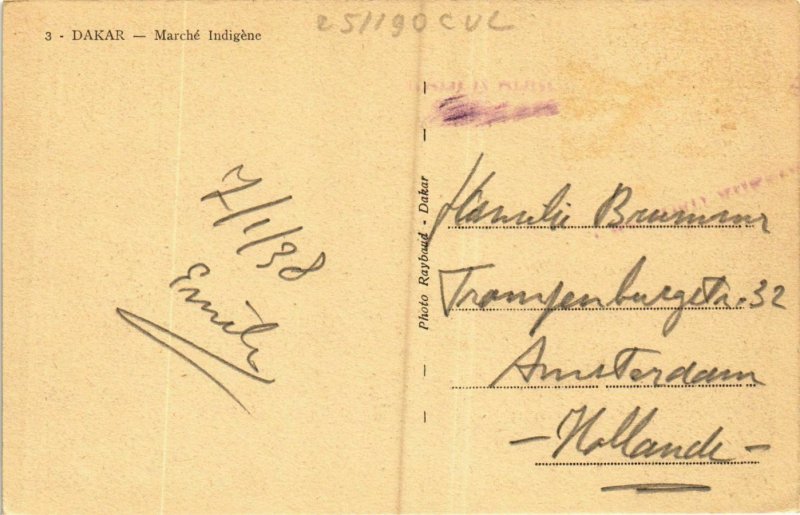 25/190 CVL
3 - DAKAR — Marché Indigène
7/1/38
Emile
Photo Raybaud - Dakar
Familie Brummer
Trompenburgstr. 32
Amsterdam
- Hollande -